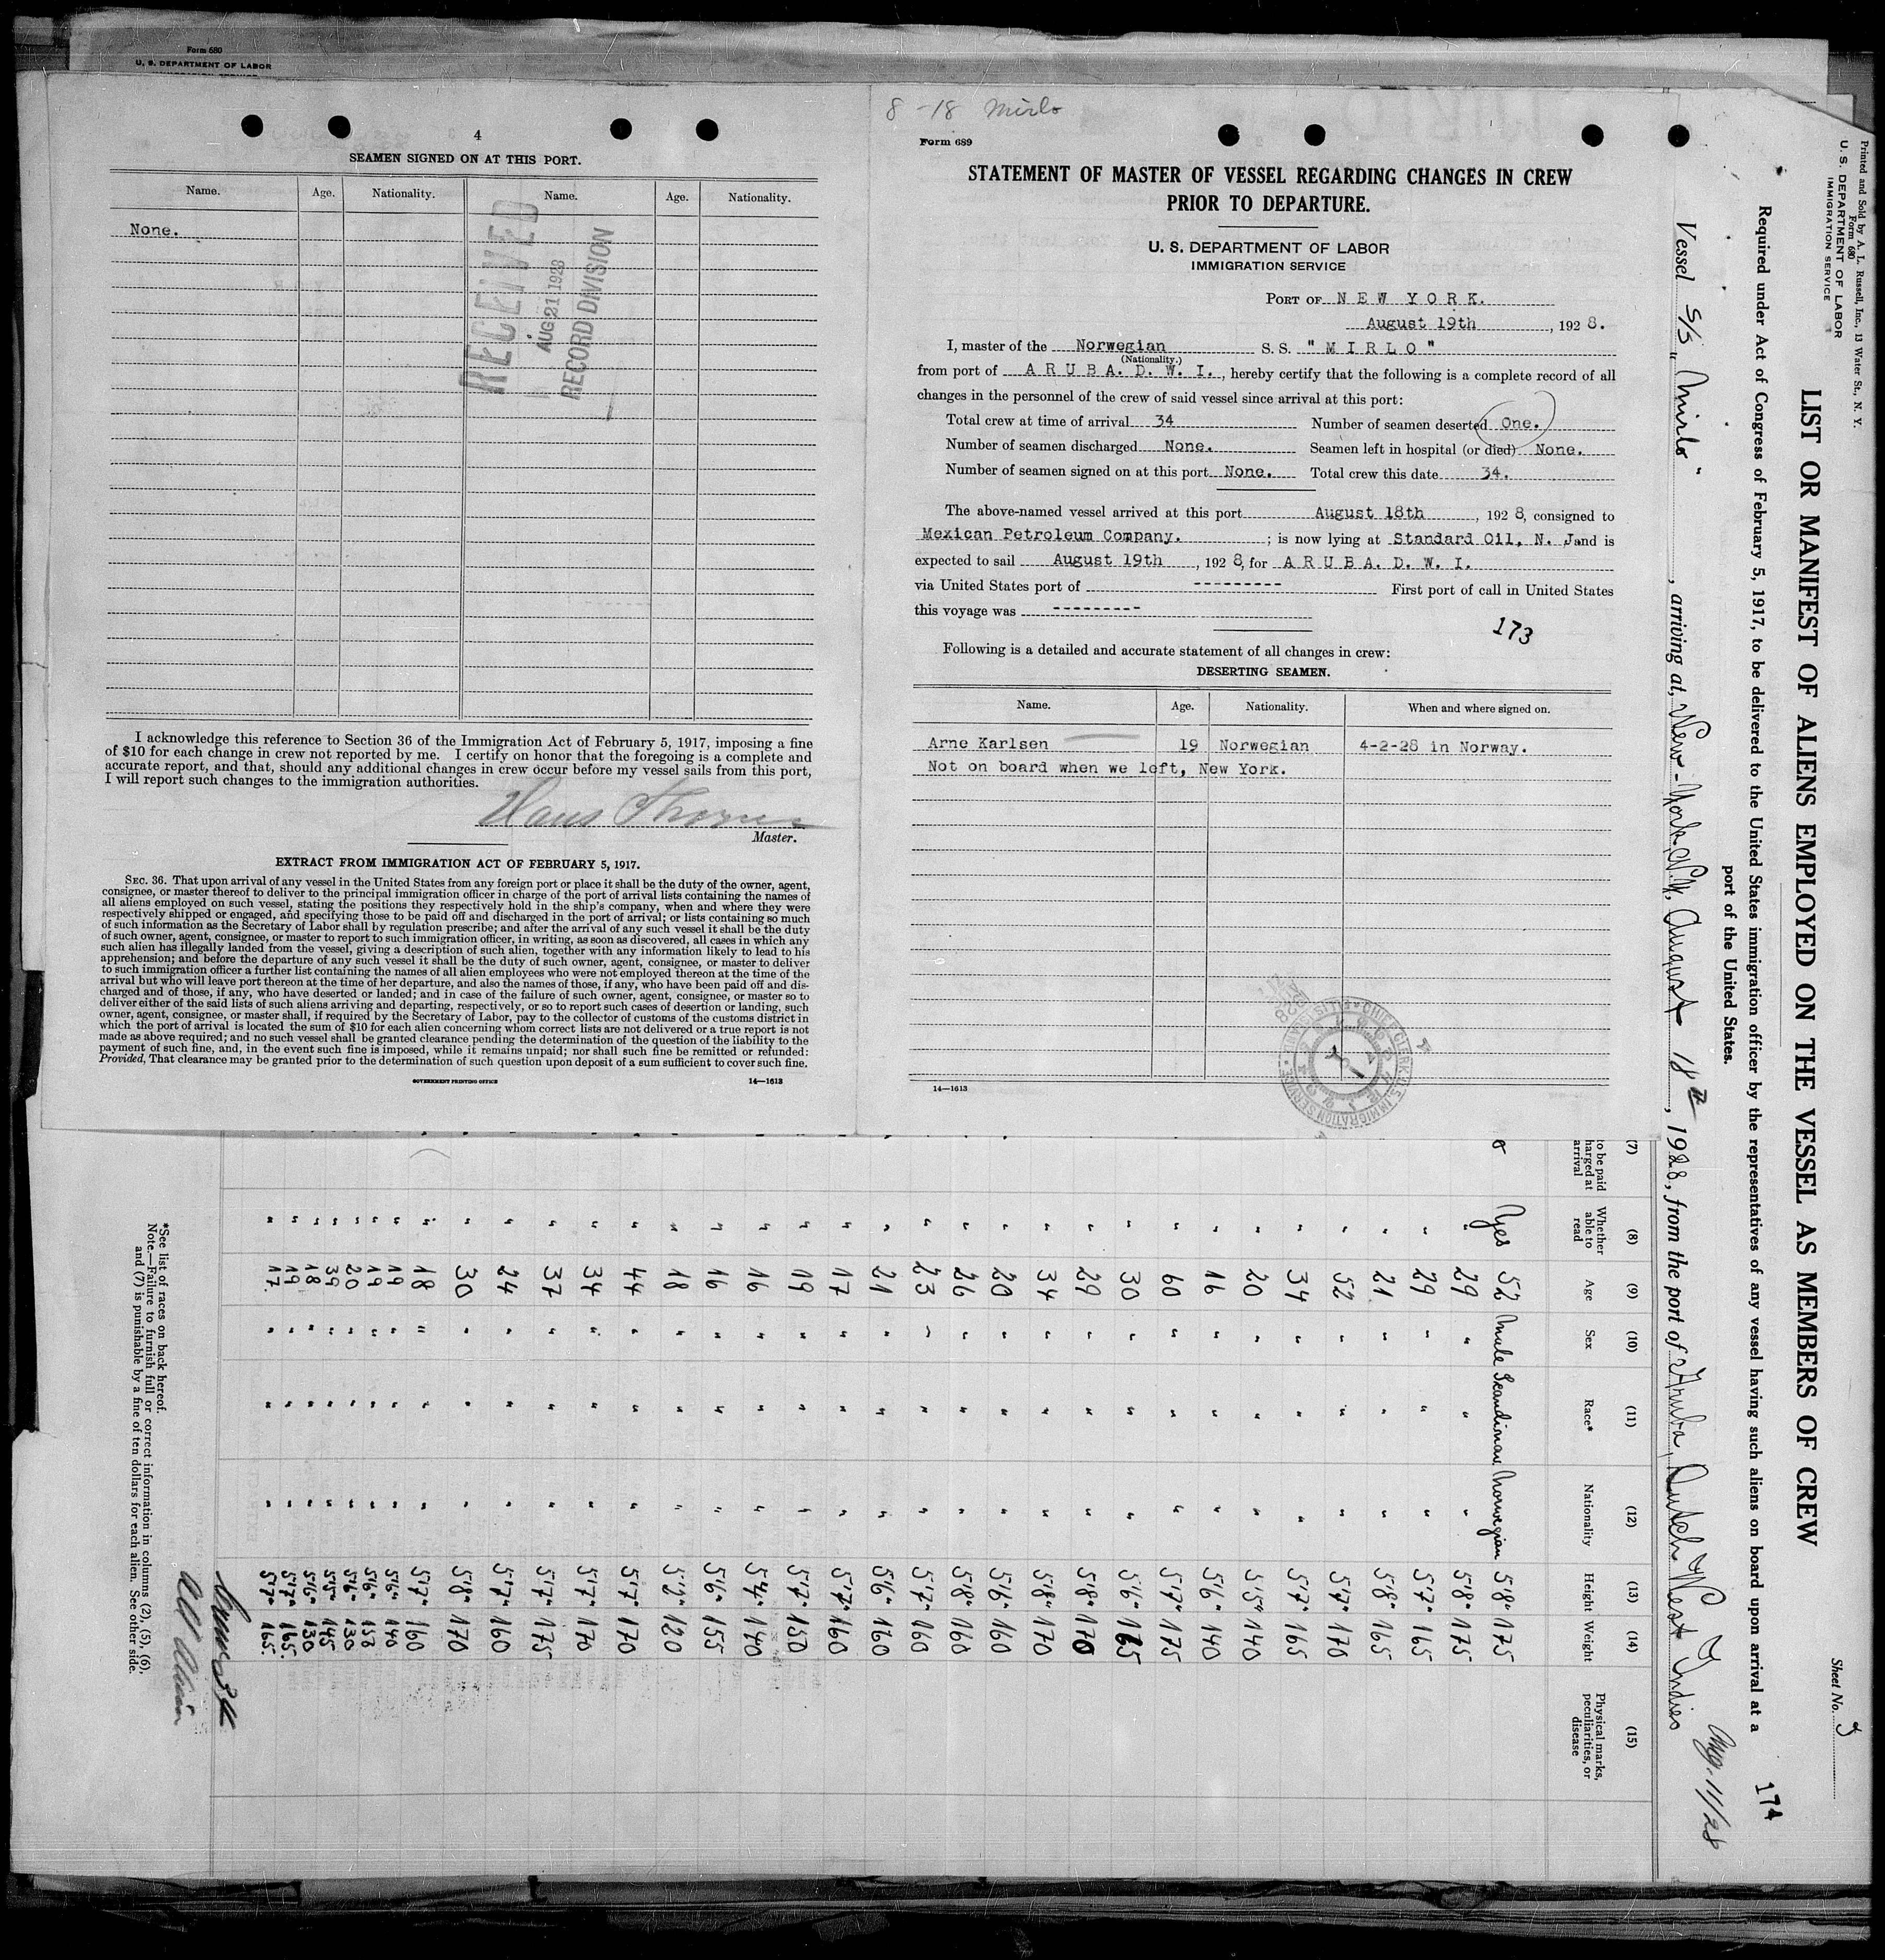 Form 680
U. S. DEPARTMENT OF LABOR
4
SEAMEN SIGNED ON AT THIS PORT.
Name. Age. Nationality. Name. Age. Nationality.
None.
RECEIVED
AUG 21 1928
RECORD DIVISION
I acknowledge this reference to Section 36 of the Immigration Act of February 5, 1917, imposing a fine
of $10 for each change in crew not reported by me. I certify on honor that the foregoing is a complete and
accurate report, and that, should any additional changes in crew occur before my vessel sails from this port,
I will report such changes to the immigration authorities.
Hans
Master.
EXTRACT FROM IMMIGRATION ACT OF FEBRUARY 5, 1917.
SEC. 36. That upon arrival of any vessel in the United States from any foreign port or place it shall be the duty of the owner, agent,
consignee, or master thereof to deliver to the principal immigration officer in charge of the port of arrival lists containing the names of
all aliens employed on such vessel, stating the positions they respectively hold in the ship's company, when and where they were
respectively shipped or engaged, and specifying those to be paid off and discharged in the port of arrival; or lists containing so much
of such information as the Secretary of Labor shall by regulation prescribe; and after the arrival of any such vessel it shall be the duty
of such owner, agent, consignee, or master to report to such immigration officer, in writing, as soon as discovered, all cases in which any
such alien has illegally landed from the vessel, giving a description of such alien, together with any information likely to lead to his
apprehension; and before the departure of any such vessel it shall be the duty of such owner, agent, consignee, or master to deliver
to such immigration officer a further list containing the names of all alien employees who were not employed thereon at the time of the
arrival but who will leave port thereon at the time of her departure, and also the names of those, if any, who have been paid off and dis-
charged and of those, if any, who have deserted or landed; and in case of the failure of such owner, agent, consignee, or master so to
deliver either of the said lists of such aliens arriving and departing, respectively, or so to report such cases of desertion or landing, such
owner, agent, consignee, or master shall, if required by the Secretary of Labor, pay to the collector of customs of the customs district in
which the port of arrival is located the sum of $10 for each alien concerning whom correct lists are not delivered or a true report is not
made as above required; and no such vessel shall be granted clearance pending the determination of the question of the liability to the
payment of such fine, and, in the event such fine is imposed, while it remains unpaid; nor shall such fine be remitted or refunded:
Provided, That clearance may be granted prior to the determination of such question upon deposit of a sum sufficient to cover such fine.
GOVERNMENT PRINTING OFFICE 14—1613
8-18 Mirlo
Form 689
STATEMENT OF MASTER OF VESSEL REGARDING CHANGES IN CREW
PRIOR TO DEPARTURE.
U. S. DEPARTMENT OF LABOR
IMMIGRATION SERVICE
PORT OF NEW YORK.
August 19th, 1928.
I, master of the Norwegian S. S. "MIRLO"
(Nationality.)
from port of ARUBA. D. W. I., hereby certify that the following is a complete record of all
changes in the personnel of the crew of said vessel since arrival at this port:
Total crew at time of arrival 34 Number of seamen deserted One.
Number of seamen discharged None. Seamen left in hospital (or died) None.
Number of seamen signed on at this port None. Total crew this date 34.
The above-named vessel arrived at this port August 18th, 1928, consigned to
Mexican Petroleum Company. ; is now lying at Standard Oil, N. J. and is
expected to sail August 19th, 1928, for ARUBA. D. W. I.
via United States port of --------- First port of call in United States
this voyage was ---------
173
Following is a detailed and accurate statement of all changes in crew:
DESERTING SEAMEN.
Name. Age. Nationality. When and where signed on.
Arne Karlsen 19 Norwegian 4-2-28 in Norway.
Not on board when we left, New York.
14—1613
CHIEF CLERK U. S. IMMIGRATION SERVICE
Printed and Sold by A. L. Russell, Inc., 13 Water St., N. Y.
Form 680
U. S. DEPARTMENT OF LABOR
IMMIGRATION SERVICE
Sheet No.
LIST OR MANIFEST OF ALIENS EMPLOYED ON THE VESSEL AS MEMBERS OF CREW
174
Required under Act of Congress of February 5, 1917, to be delivered to the United States immigration officer by the representatives of any vessel having such aliens on board upon arrival at a
port of the United States.
Aug. 11/28
Vessel S/S "Mirlo", arriving at New-York, N.Y., August 18th, 1928, from the port of Aruba, Dutch West Indies
(7) (8) (9) (10) (11) (12) (13) (14) (15)
to be paid
harged at
arrival
Whether
able to
read
Age Sex Race* Nationality Height Weight
Physical marks,
peculiarities, or
disease
Yes 52 Male Scandinav. Norwegian 5'8" 175
" 29 " " " 5'8" 175
" 29 " " " 5'7" 165
" 21 " " " 5'8" 165
" 52 " " " 5'7" 170
" 34 " " " 5'7" 165
" 20 " " " 5'5" 140
" 16 " " " 5'6" 140
" 60 " " " 5'7" 175
" 30 " " " 5'6" 165
" 29 " " " 5'8" 170
" 34 " " " 5'8" 170
" 20 " " " 5'6" 160
" 26 " " " 5'8" 160
" 23 " " " 5'7" 160
" 21 " " " 5'6" 160
" 17 " " " 5'7" 160
" 19 " " " 5'7" 150
" 16 " " " 5'4" 140
" 16 " " " 5'6" 155
" 18 " " " 5'2" 120
" 44 " " " 5'7" 170
" 34 " " " 5'7" 170
" 37 " " " 5'7" 175
" 24 " " " 5'7" 160
" 30 " " " 5'8" 170
" 18 " " " 5'7" 160
" 19 " " " 5'6" 140
" 19 " " " 5'6" 158
" 20 " " " 5'6" 130
" 39 " " " 5'5" 145
" 18 " " " 5'6" 130
" 19 " " " 5'7" 165.
" 17. " " " 5'7" 165.
*See list of races on back hereof.
Note.—Failure to furnish full or correct information in columns (2), (5), (6),
and (7) is punishable by a fine of ten dollars for each alien. See other side.